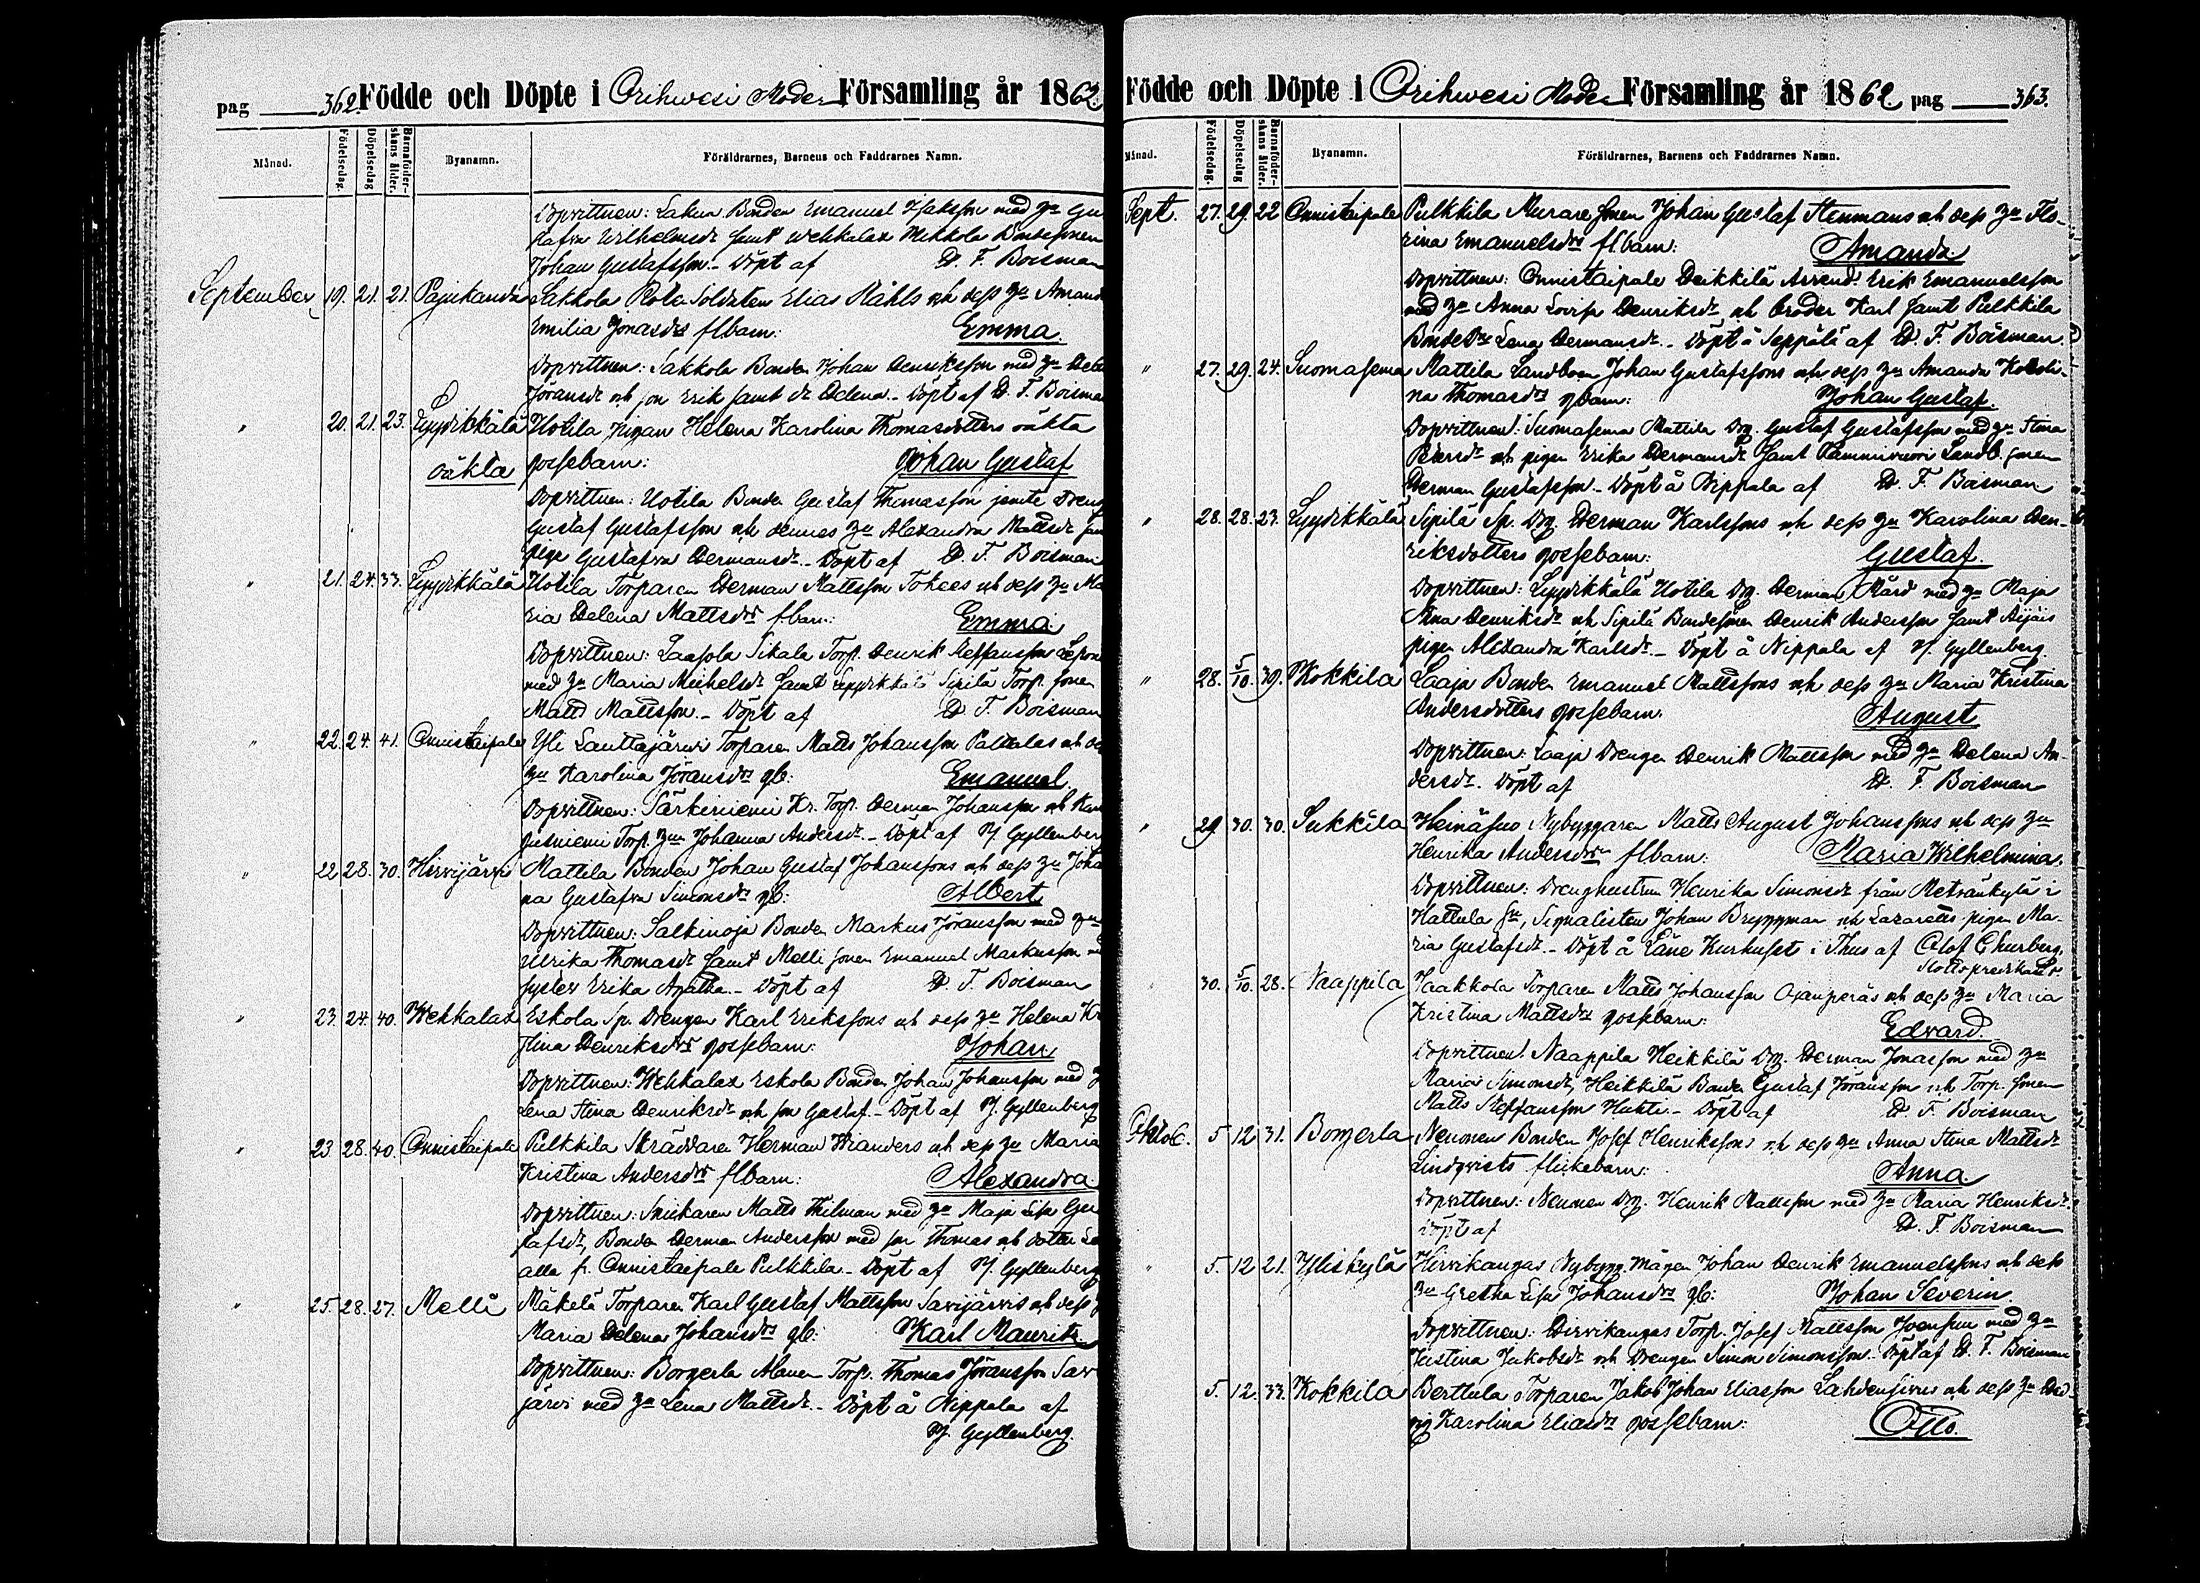 pag 362. Födde och Döpte i Orihwesi Moder Församling år 1862
Månad. Födelsedag. Döpelsedag Barnaföderskans ålder. Byanamn. Föräldrarnes, Barnens och Faddrarnes Namn.
Dopvittnen: Bonden Emanuel med
Wilhelmsdr samt Wehkalax Mikkola Bondesonen
Johan Gustafsson. Döpt af D. F. Boisman
September 19. 21. 21. Pajukanda Sakkola Rote Soldaten Elias Ståhls och dess hu
Emilia Jonasdrs flbarn: Emma.
Dopvittnen: Sakkola Bonden Johan Henriksson med hu
Jöransdr och son Erik samt dr Helena. Döpt af D. F. Boisman
" 20. 21. 23. Lyydikkälä Uotila pigan Helena Karolina Thomasdotters oäkta
oäkta gossebarn: Johan Gustaf
Dopvittnen: Uotila Bonden Gustaf Thomasson jemte
Gustaf Gustafsson och dennes hu Alexandra Mattsdr
pigan Gustafva Hermansdr. Döpt af D. F. Boisman
" 21. 24. 33. Lyydikkälä Uotila Torparen Herman Mattsson och dess hu Ma
ria Helena Mattsdrs flbarn: Emma.
Dopvittnen: Laasola Sikala Torp. Henrik Steffansson
med hu Maria Michelsdr samt Lyydikkälä Sipilä Torp. sonen
Matts Mattsson. Döpt af D. F. Boisman
" 22. 24. 41. Onnistaipale Yli Lauttajärwi Torparen Matts Johansson och
hu Karolina Jöransdrs gb: Emanuel
Dopvittnen: Särkiniemi Kr. Torp. Herman Johansson och
Torp. hun Johanna Andersdr. Döpt af Hj. Gyllenberg
" 22 28. 30. Hirvijärvi Mattila Bonden Johan Gustaf Johanssons och dess hu
na Gustafva Simonsdrs gb: Albert
Dopvittnen: Salkinoja Bonden Markus Jöransson med hu
Ulrika Thomasdr samt Melli sonen Emanuel Markusson
syster Erika Agatha. Döpt af D. F. Boisman
" 23. 24. 40. Wehkalax Eskola Sp. Drengen Karl Erikssons och dess hu Helena Kri
stina Henriksdrs gossebarn: Johan
Dopvittnen: Wehkalax Eskola Bonden Johan Johansson med
Lena Stina Henriksdr och son Gustaf. Döpt af Hj. Gyllenberg
" 23 28. 40. Onnistaipale Pulkkila Skräddaren Herman Wianders och dess hu Maria
Kristina Andersdrs flbarn: Alexandra.
Dopvittnen: Snickaren Matts Thilman med hu Maja Lisa Gu
stafsdr, Bonden Herman Andersson med son Thomas och dotter
alla fr. Onnistaipale Pulkkila. Döpt af Hj. Gyllenberg
" 25. 28. 27. Melli Mäkelä Torparen Karl Gustaf Mattsson Savijärvis och dess
Maria Helena Johansdrs gb: Karl Mauritz.
Dopvittnen: Borgerla Torp. Thomas Jöransson Sav
järvi med hu Lena Mattsdr. Döpt å Nippala af
Hj. Gyllenberg.
Födde och Döpte i Orihwesi Moder Församling år 1862 pag 363.
Månad. Födelsedag. Döpelsedag Barnaföderskans ålder. Byanamn. Föräldrarnes, Barnens och Faddrarnes Namn.
Sept. 27. 29. 22 Onnistaipale Pulkkila Murare sonen Johan Gustaf Stenmans och dess hu Flo-
rina Emanuelsdrs flbarn: Amanda
Dopvittnen: Onnistaipale Heikkilä Arrend. Erik Emanuelsson
med hu Anna Lovisa Henriksdr och broder Karl samt Pulkkila
Bondedr Lena Hermansdr. Döpt å Seppälä af D. F. Boisman.
" 27. 29. 24. Suomasema Mattila Landboen Johan Gustafssons och dess hu Amanda Karoli-
na Thomasdrs gbarn: Johan Gustaf.
Dopvittnen: Suomasema Mattila Drg. Gustaf Gustafsson med hu Stina
och pigan Erika Hermansdr samt Landb. sonen
Herman Gustafsson. Döpt å Nippala af D. F. Boisman
" 28. 28. 23. Lyydikkälä Sipilä Sp. Drg. Herman Karlssons och dess hu Karolina Hen-
riksdotters gossebarn: Gustaf.
Dopvittnen: Lyydikkälä Uotila Drg. Herman med hu Maja
Stina Henriksdr och Sipilä Bondesonen Henrik Andersson samt Äijäis
pigan Alexandra Karlsdr. Döpt å Nippala af Hj. Gyllenberg.
" 28. 5/10. 39. Kokkila Laaja Bonden Emanuel Mattssons och dess hu Maria Kristina
Andersdotters gossebarn: August
Dopvittnen: Laaja Drengen Henrik Mattsson med hu Helena An-
dersdr. Döpt af D. F. Boisman
" 29. 30. 30. Sukkila Heinäsuo Nybyggaren Matts August Johanssons och dess hu
Henrika Andersdrs flbarn: Maria Wilhelmina.
Dopvittnen: Drenghustrun Henrika Simonsdr från i
Hattula Sn, Signalisten Johan Bryggman och Lazaretts pigan Ma-
ria Gustafsdr. Döpt å Läne Kurhuset i T:hus af Olof Churberg.
Slottspredikant.
30. 5/10. 28. Naappila Jaakkola Torparen Matts Johansson Ojanperäs och dess hu Maria
Kristina Mattsdrs gossebarn: Edvard.
Dopvittnen: Naappila Heikkilä Drg. Herman Jonasson med hu
Maria Simonsdr, Heikkilä Bonden Gustaf Jöransson och Torp. sonen
Matts Steffansson Huhti. Döpt af D. F. Boisman
Oktob. 5 12 31. Borgerla Neuonen Bonden Josef Henrikssons och dess hu Anna Stina Mattsdr
Lindqvists flickebarn: Anna.
Dopvittnen: Neuonen Drg. Henrik Mattsson med hu Maria Henriksdr.
Döpt af D. F. Boisman
" 5. 12 21. Yliskylä Hirvikangas Nybygg. Mågen Johan Henrik Emanuelssons och dess
hu Gretha Lisa Johansdrs gb: Johan Severin.
Dopvittnen: Hirvikangas Torp. Josef Mattsson med hu
Justina Jakobsdr och Drengen Simon Simonsson. Döpt af D. F. Boisman
5. 12. 33. Kokkila Berttula Torparen Jakob Johan Eliasson och dess hu Hed-
vig Karolina Eliasdrs gossebarn: Otto.